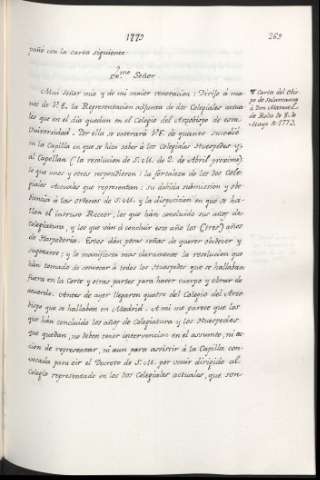 1773
269
pañó con la carta siguiente
Yll.mo Señor
Mui señor mio y de mi maior veneracion: Dirijo á ma-
nos de V.E. la Representacion adjunta de dos Colegiales actua
les que en el dia quedan en el Colegio del Arzobispo de esta
Universidad. Por ella se enterará V.E. de quanto sucedió
en la Capilla en que se hizo saber á los Colegiales Huespedes y
al Capellan (la resolucion de S.M. de 2. de Abril proximo)
lo que unos y otros respondieron: la fortaleza de los dos Cole-
giales Actuales que representan: su debida sumision y obe-
diencia á las ordenes de S.M. y la disposicion en que se ha-
llan el intruso Rector, los que han concluido sus años de
Colegiatura, y los que ván á concluir este año los (tres) años
de Hospederia. Estos dán pocas señas de querer obedecer y
sugetarse; y lo manifiesta mas claramente la resolucion que
han tomado de convocar á todos los Huespedes que se hallaban
fuera en la Corte y otras partes para hacer cuerpo y obrar de
acuerdo. Antes de ayer llegaron quatro del Colegio del Arzo
bispo que se hallaban en Madrid. A mi me parece que los
que han concluido los años de Colegiatura y los Huespedes
que quedan, no deben tener intervencion en el asunto, ni ac-
cion de representar, ni aun para asistir á la Capilla con-
vocada para oir el Decreto de S.M. por venir dirigido al
Colegio representado en los dos Colegiales actuales, que son-
Carta del Obis
po de Salamanca
á Don Manuel
de Roda de 8. de
Mayo de 1773.